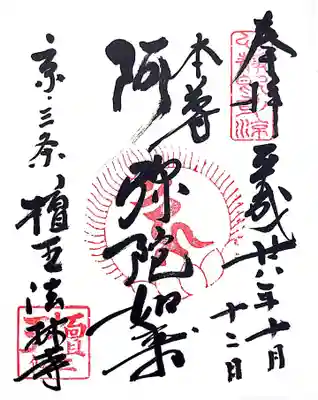 奉拝 平成廿八年十月十二日
本尊
阿弥陀如来
京・三条 檀王法林寺